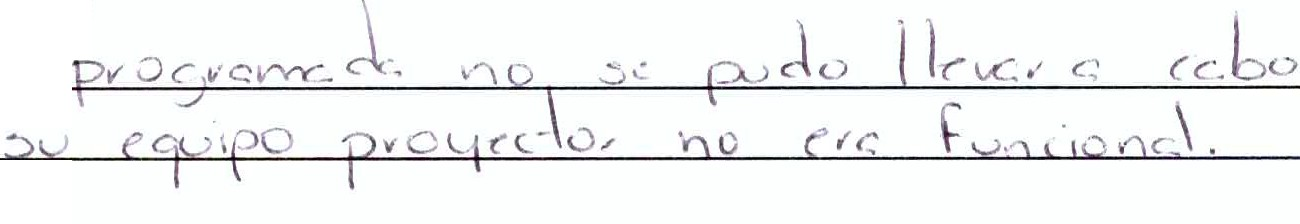 programada no se pudo llevar a cabo
su equipo proyector no era funcional.